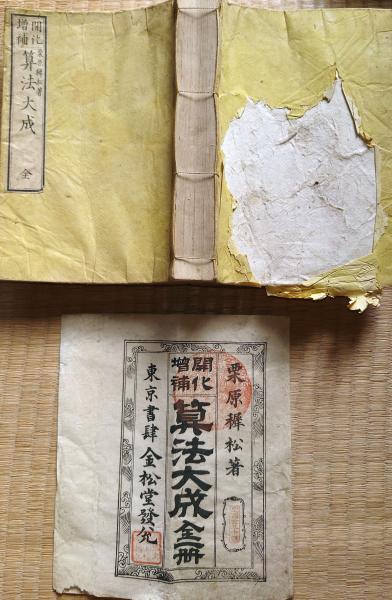 開化
増補
栗原穉松著
算法大成 全
栗原穉松著
開化
増補
算法大成 全一冊
東京書肆 金松堂發兌